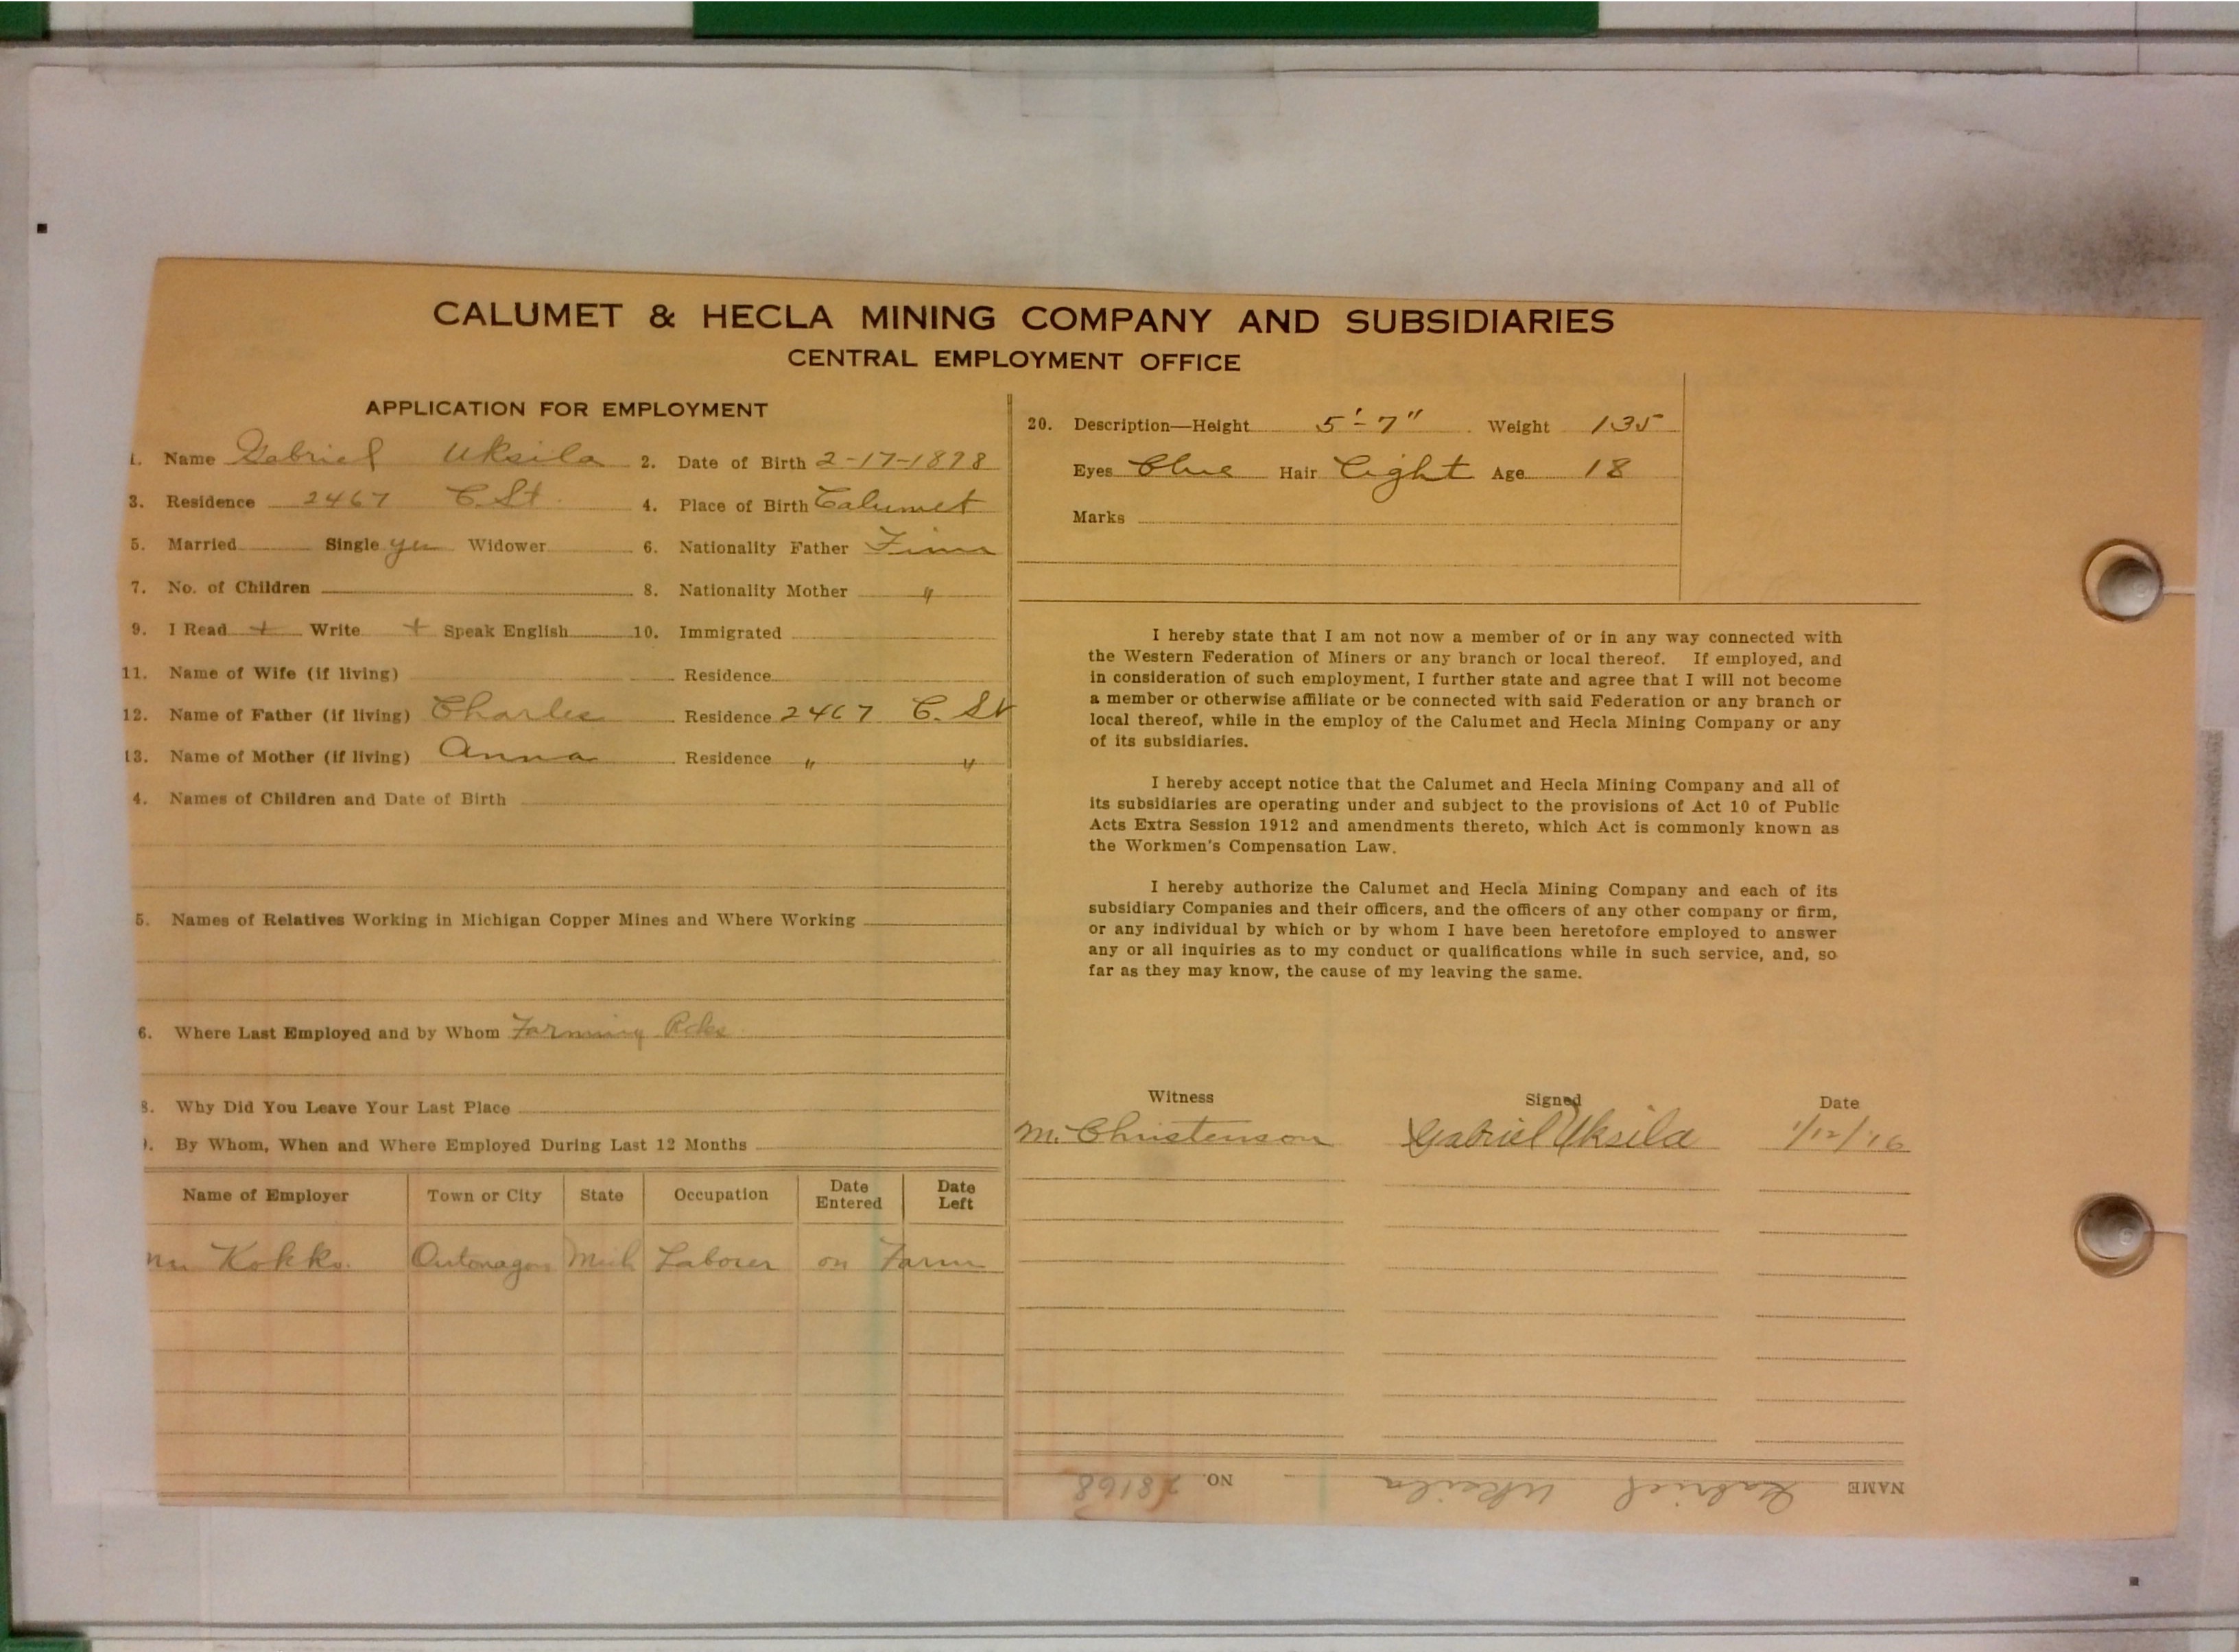 CALUMET & HECLA MINING COMPANY AND SUBSIDIARIES
CENTRAL EMPLOYMENT OFFICE
APPLICATION FOR EMPLOYMENT
1. Name Gabriel Uksila 2. Date of Birth 2-17-1898
3. Residence 2467 C. St. 4. Place of Birth Calumet
5. Married Single yes Widower 6. Nationality Father Finn
7. No. of Children 8. Nationality Mother "
9. I Read + Write + Speak English 10. Immigrated
11. Name of Wife (if living) Residence
12. Name of Father (if living) Charles Residence 2467 C. St
13. Name of Mother (if living) Anna Residence " "
4. Names of Children and Date of Birth
5. Names of Relatives Working in Michigan Copper Mines and Where Working
6. Where Last Employed and by Whom Farming
8. Why Did You Leave Your Last Place
). By Whom, When and Where Employed During Last 12 Months
Name of Employer Town or City State Occupation Date Entered Date Left
Kokko. Ontonagon Mich Laborer on Farm
20. Description—Height 5'-7" Weight 135
Eyes Blue Hair Light Age 18
Marks
I hereby state that I am not now a member of or in any way connected with
the Western Federation of Miners or any branch or local thereof. If employed, and
in consideration of such employment, I further state and agree that I will not become
a member or otherwise affiliate or be connected with said Federation or any branch or
local thereof, while in the employ of the Calumet and Hecla Mining Company or any
of its subsidiaries.
I hereby accept notice that the Calumet and Hecla Mining Company and all of
its subsidiaries are operating under and subject to the provisions of Act 10 of Public
Acts Extra Session 1912 and amendments thereto, which Act is commonly known as
the Workmen's Compensation Law.
I hereby authorize the Calumet and Hecla Mining Company and each of its
subsidiary Companies and their officers, and the officers of any other company or firm,
or any individual by which or by whom I have been heretofore employed to answer
any or all inquiries as to my conduct or qualifications while in such service, and, so
far as they may know, the cause of my leaving the same.
Witness Signed Date
M. Christenson Gabriel Uksila 1/12/16
NAME Gabriel Uksila NO. 28168